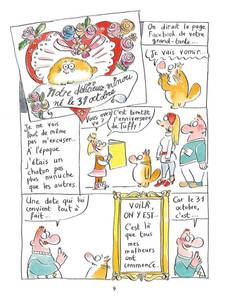 Notre délicieux minou
né le 31 octobre
On dirait la page
Facebook de votre
grand-tante...
Je vais vomir...
Je ne vais
tout de même
pas m'excuser...
À l'époque
j'étais un
chaton pas
plus nunuche
que les autres.
Vous avez
vu ?
C'est bientôt
l'anniversaire
de Tuffy !
Une date qui lui
convient tout à
fait...
VOILÀ,
ON Y EST...
C'est là
que tous
mes
malheurs
ont
commencé.
Car le 31
octobre,
c'est...
9